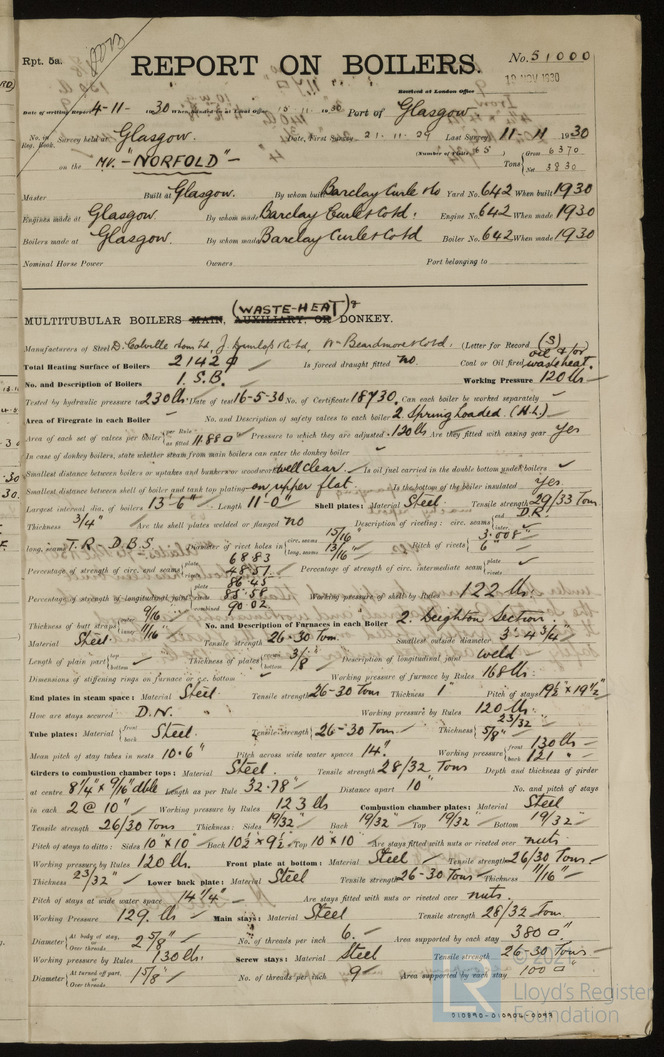 Rpt. 5a.
REPORT ON BOILERS.
No. 51000
Received at London Office 19 NOV 1930
Date of writing Report 4-11- 1930 When handed in at Local Office 15.11.1930 Port of Glasgow
No. in Reg. Book. Survey held at Glasgow. Date, First Survey 21.11.29 Last Survey 11-11 1930
on the MV. "NORFOLD" (Number of Visits 65) Tons Gross 6370 Net 3830
Master Built at Glasgow. By whom built Barclay Curle & Co Yard No. 642 When built 1930
Engines made at Glasgow. By whom made Barclay Curle & Co Ltd. Engine No. 642 When made 1930
Boilers made at Glasgow. By whom made Barclay Curle & Co Ltd Boiler No. 642 When made 1930
Nominal Horse Power Owners Port belonging to
(WASTE-HEAT) &
MULTITUBULAR BOILERS MAIN, AUXILIARY, OR DONKEY.
Manufacturers of Steel D. Colville & Sons Ltd, J. Dunlop & Co Ltd, Wm Beardmore & Co Ltd. (Letter for Record (S)
Total Heating Surface of Boilers 2142 Is forced draught fitted no Coal or Oil fired oil &/or waste heat.
No. and Description of Boilers 1. S.B. Working Pressure 120 lbs
Tested by hydraulic pressure to 230 lbs. Date of test 16-5-30 No. of Certificate 18730. Can each boiler be worked separately
Area of Firegrate in each Boiler No. and Description of safety valves to each boiler 2 Spring loaded. (H.L.)
Area of each set of valves per boiler per Rule as fitted 11.88 Pressure to which they are adjusted 120 lbs Are they fitted with easing gear yes
In case of donkey boilers, state whether steam from main boilers can enter the donkey boiler
Smallest distance between boilers or uptakes and bunkers or woodwork well clear Is oil fuel carried in the double bottom under boilers
Smallest distance between shell of boiler and tank top plating on upper flat. Is the bottom of the boiler insulated yes
Largest internal dia. of boilers 13'-6" Length 11'-0" Shell plates: Material Steel Tensile strength 29/33 Tons
Thickness 3/4" Are the shell plates welded or flanged no Description of riveting: circ. seams end D.R. inter.
long. seams T.R. D.B.S Diameter of rivet holes in circ. seams 15/16 long. seams 13/16" Pitch of rivets 3.008" 6"
Percentage of strength of circ. end seams plate 68.83 rivets 48.57 Percentage of strength of circ. intermediate seam plate rivets
Percentage of strength of longitudinal joint plate 86.45 rivets 85.58 combined 90.02 Working pressure of shell by Rules 122 lbs
Thickness of butt straps outer 9/16 inner 11/16 No. and Description of Furnaces in each Boiler 2. Deighton Section
Material Steel Tensile strength 26-30 Tons Smallest outside diameter 3'-4 3/4"
Length of plain part top bottom Thickness of plates crown bottom 3/8" Description of longitudinal joint weld
Dimensions of stiffening rings on furnace or c.c. bottom Working pressure of furnace by Rules 168 lbs
End plates in steam space: Material Steel Tensile strength 26-30 Tons Thickness 1" Pitch of stays 19½" x 19½"
How are stays secured D.N. Working pressure by Rules 120 lbs
Tube plates: Material front back Steel Tensile strength 26-30 Tons Thickness 23/32" 5/8"
Mean pitch of stay tubes in nests 10.6" Pitch across wide water spaces 14" Working pressure front 130 lbs back 121 "
Girders to combustion chamber tops: Material Steel Tensile strength 28/32 Tons Depth and thickness of girder
at centre 8¼" x 9/16" dble Length as per Rule 32.78" Distance apart 10" No. and pitch of stays
in each 2 @ 10" Working pressure by Rules 123 lbs Combustion chamber plates: Material Steel
Tensile strength 26/30 Tons Thickness: Sides 19/32" Back 19/32" Top 19/32" Bottom 19/32"
Pitch of stays to ditto: Sides 10" x 10" Back 10½ x 9½ Top 10" x 10 Are stays fitted with nuts or riveted over nuts
Working pressure by Rules 120 lbs. Front plate at bottom: Material Steel Tensile strength 26/30 Tons
Thickness 23/32" Lower back plate: Material Steel Tensile strength 26-30 Tons Thickness 11/16"
Pitch of stays at wide water space 14¼" Are stays fitted with nuts or riveted over nuts.
Working Pressure 129 lbs Main stays: Material Steel Tensile strength 28/32 Tons
Diameter At body of stay, or Over threads 2 5/8" No. of threads per inch 6. Area supported by each stay 380
Working pressure by Rules 130 lbs. Screw stays: Material Steel Tensile strength 26-30 Tons
Diameter At turned off part, or Over threads 1 5/8" No. of threads per inch 9 Area supported by each stay 100
© 2021
LR
Lloyd's Register
Foundation
010890-010904-0097